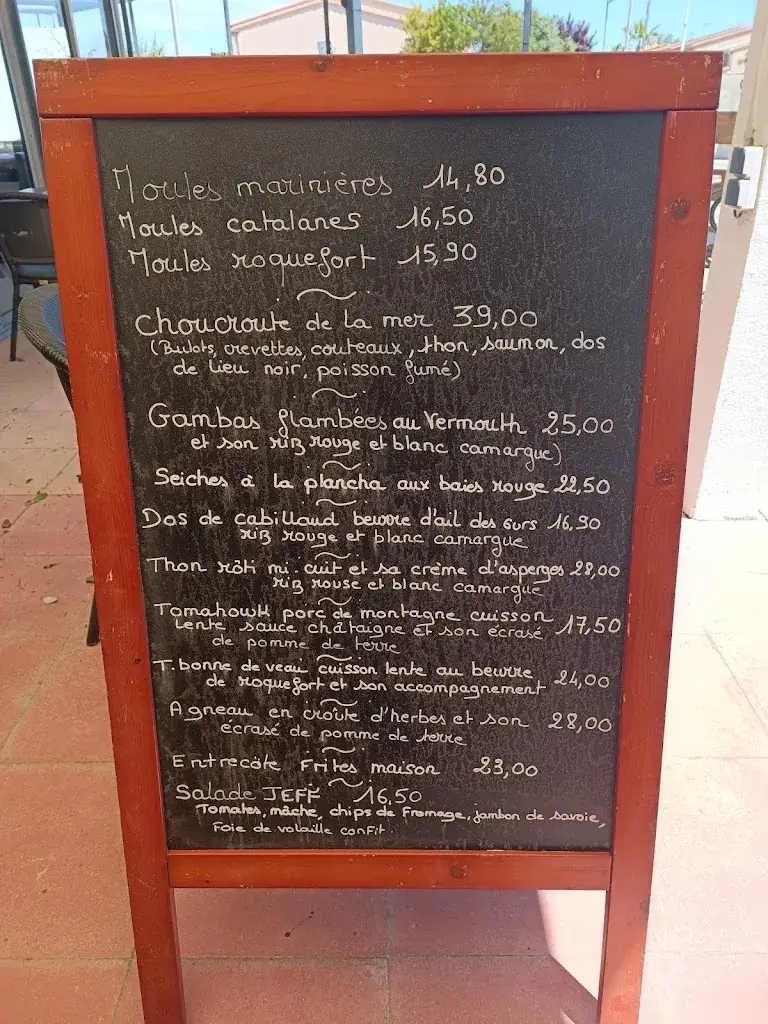 Moules marinières 14,80
Moules catalanes 16,50
Moules roquefort 15,90
Choucroute de la mer 39,00
(Bulots, crevettes, couteaux, thon, saumon, dos
de lieu noir, poisson fumé)
Gambas flambées au Vermouth 25,00
et son riz rouge et blanc camargue)
Seiches à la plancha aux baies rouge 22,50
Dos de cabillaud beurre d'ail des ours 16,90
riz rouge et blanc camargue
Thon rôti mi.cuit et sa crème d'asperges 28,00
riz rouge et blanc camargue
Tomahowk porc de montagne cuisson 17,50
lente sauce châtaigne et son écrasé
de pomme de terre
T.bonne de veau cuisson lente au beurre 24,00
de roquefort et son accompagnement
Agneau en croûte d'herbes et son 28,00
écrasé de pomme de terre
Entrecôte Frites maison 23,00
Salade JEFF 16,50
Tomates, mâche, chips de fromage, jambon de savoie,
Foie de volaille confit.